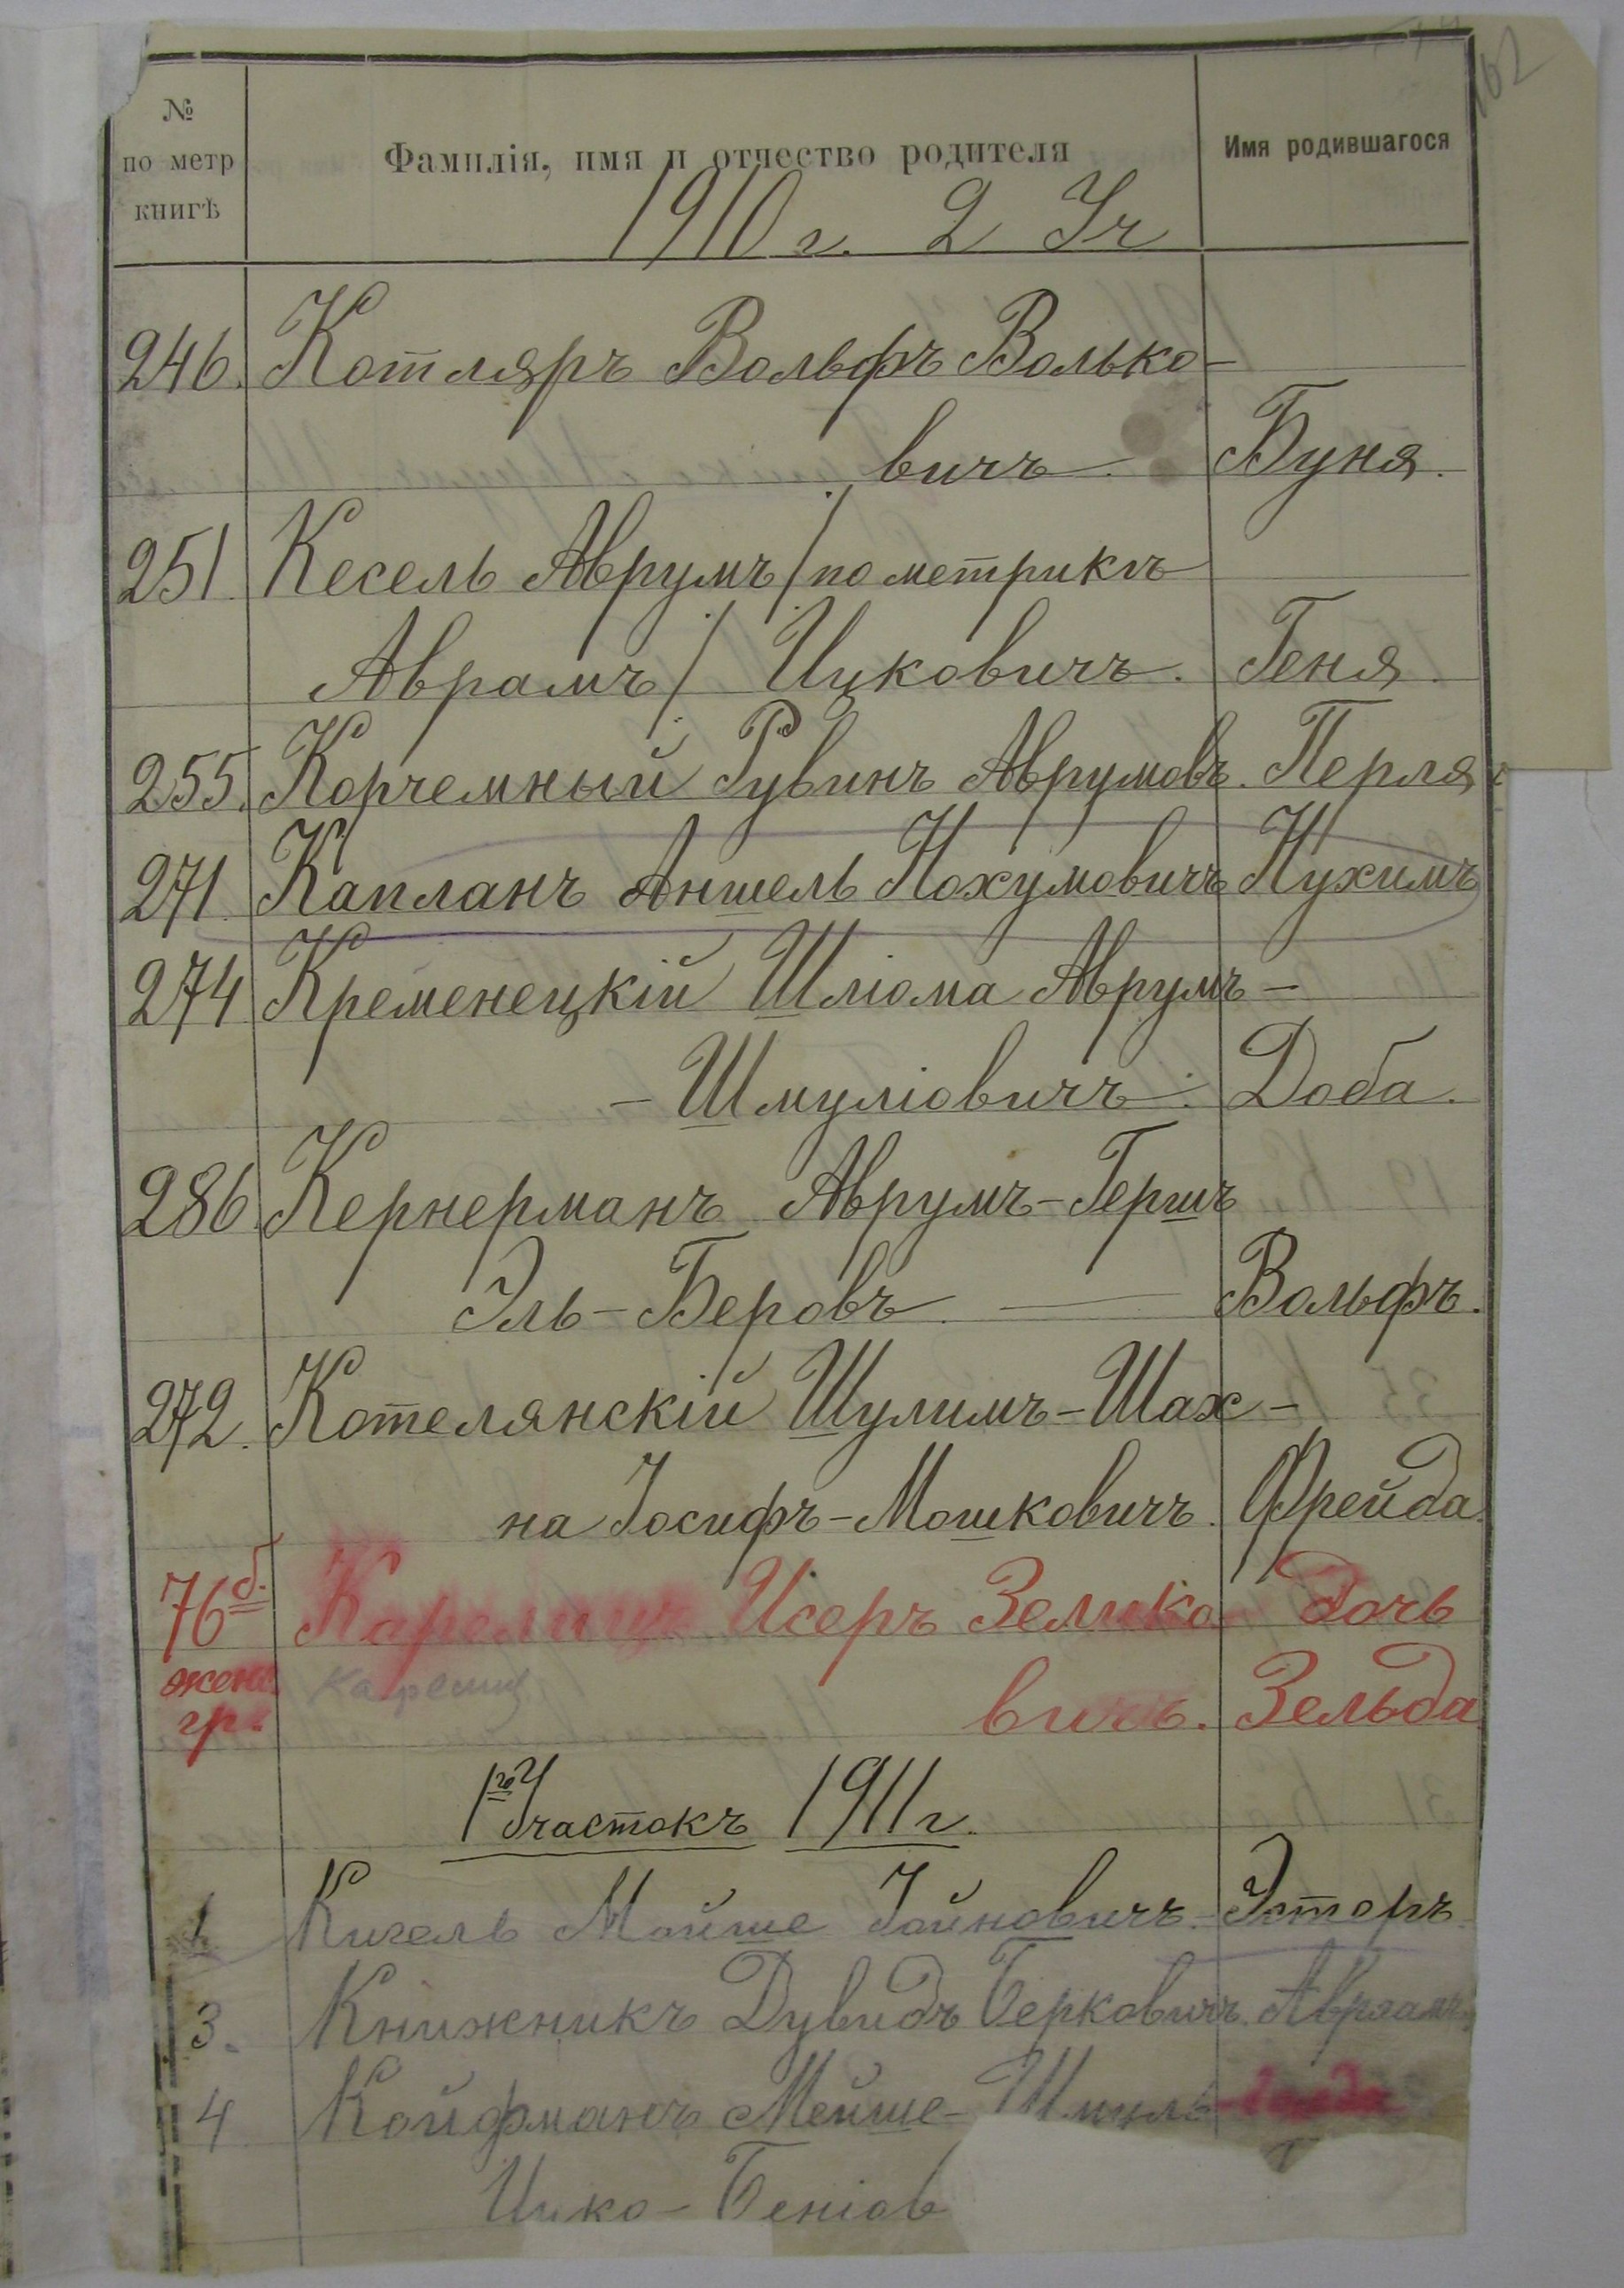 162
№ по метр книгѣ
Фамилія, имя и отчество родителя
Имя родившагося
1910 г. 2 Уч
246. Котляръ Вольфъ Волько-
вичъ Буня.
251. Кесель Аврумъ /по метрикѣ
Аврамъ/ Ицковичъ. Геня.
255. Корчемный Рувинъ Аврумовъ. Перля
271. Капланъ Аншель Нохумовичъ Нухимъ
274 Кременецкій Шліома Аврумъ-
-Шмуліовичъ. Доба.
286. Кернерманъ Аврумъ-Гершъ
Эль-Беровъ — Вольфъ.
272. Котелянскій Шулимъ-Шах-
на Іосифъ-Мошковичъ. Фрейда.
76 б. Карелицъ Исеръ Зелико- Дочь
жен. гр. Карелиц вичъ. Зельда
1го Участокъ 1911 г.
1 Кигель Мойше Іойновичъ. Эстеръ.
3. Книжникъ Дувидъ Берковичъ. Авраамъ
4 Койфманъ Мейше-Шмуль
Ицко-Беніов